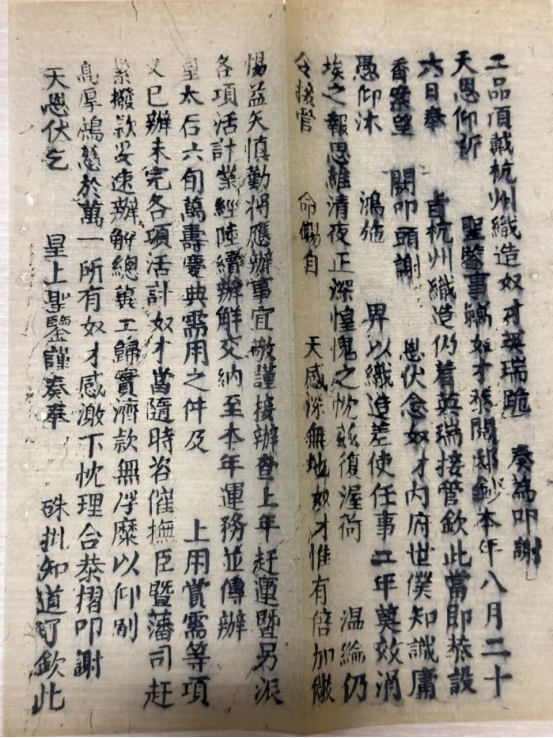 工品頂戴杭州織造奴才英瑞跪　奏為叩謝
天恩仰祈　聖鑒事竊奴才恭閱邸鈔本年八月二十
六日奉　旨杭州織造仍着英瑞接管欽此當即恭設
香案望　闕叩頭謝　恩伏念奴才內府世僕知識庸
愚仰沐　鴻施　畀以織造差使任事二年莫效涓
埃之報思維清夜正深惶愧之忱茲復渥荷　溫綸仍
令接管　命錫自　天感深無地奴才惟有倍加儆
惕益矢慎勤將應辦事宜敬謹接辦查上年趕運暨另派
各項活計業經陸續辦解交納至本年運務並傳辦
皇太后六旬萬壽慶典需用之件及　上用賞需等項
又已辦未完各項活計奴才當隨時咨催撫臣暨藩司赶
緊撥款妥速辦解總冀工歸實濟款無浮靡以仰副
高厚鴻慈於萬一所有奴才感激下忱理合恭摺叩謝
天恩伏乞　皇上聖鑒謹奏奉　硃批知道了欽此